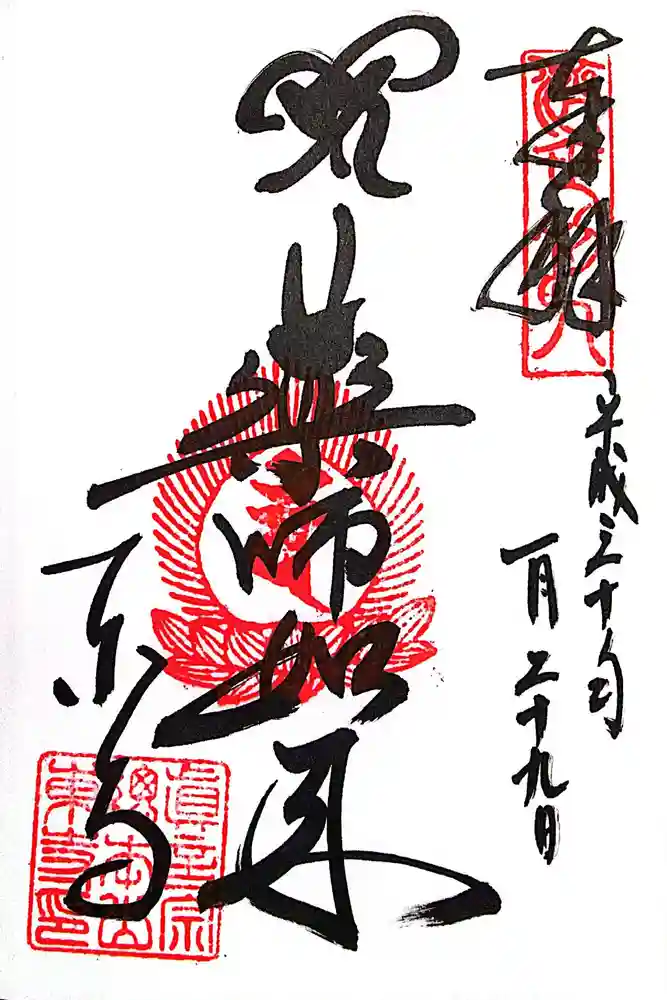 奉拝
平成三十年
一月二十九日
薬師如来
東寺
真言宗
總本山
東寺印